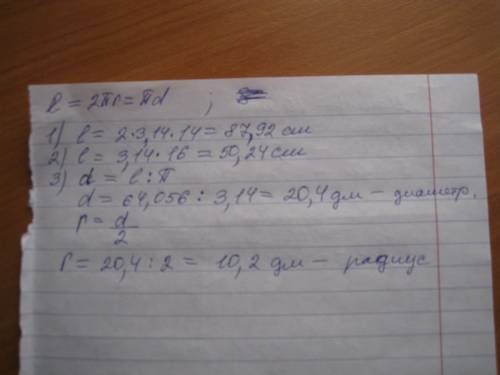 ℓ = 2πr = πd ;
1) ℓ = 2·3,14·14 = 87,92 см
2) ℓ = 3,14·16 = 50,24 см
3) d = ℓ : π
d = 64,056 : 3,14 = 20,4 дм – диаметр.
r = d/2
r = 20,4 : 2 = 10,2 дм – радиус